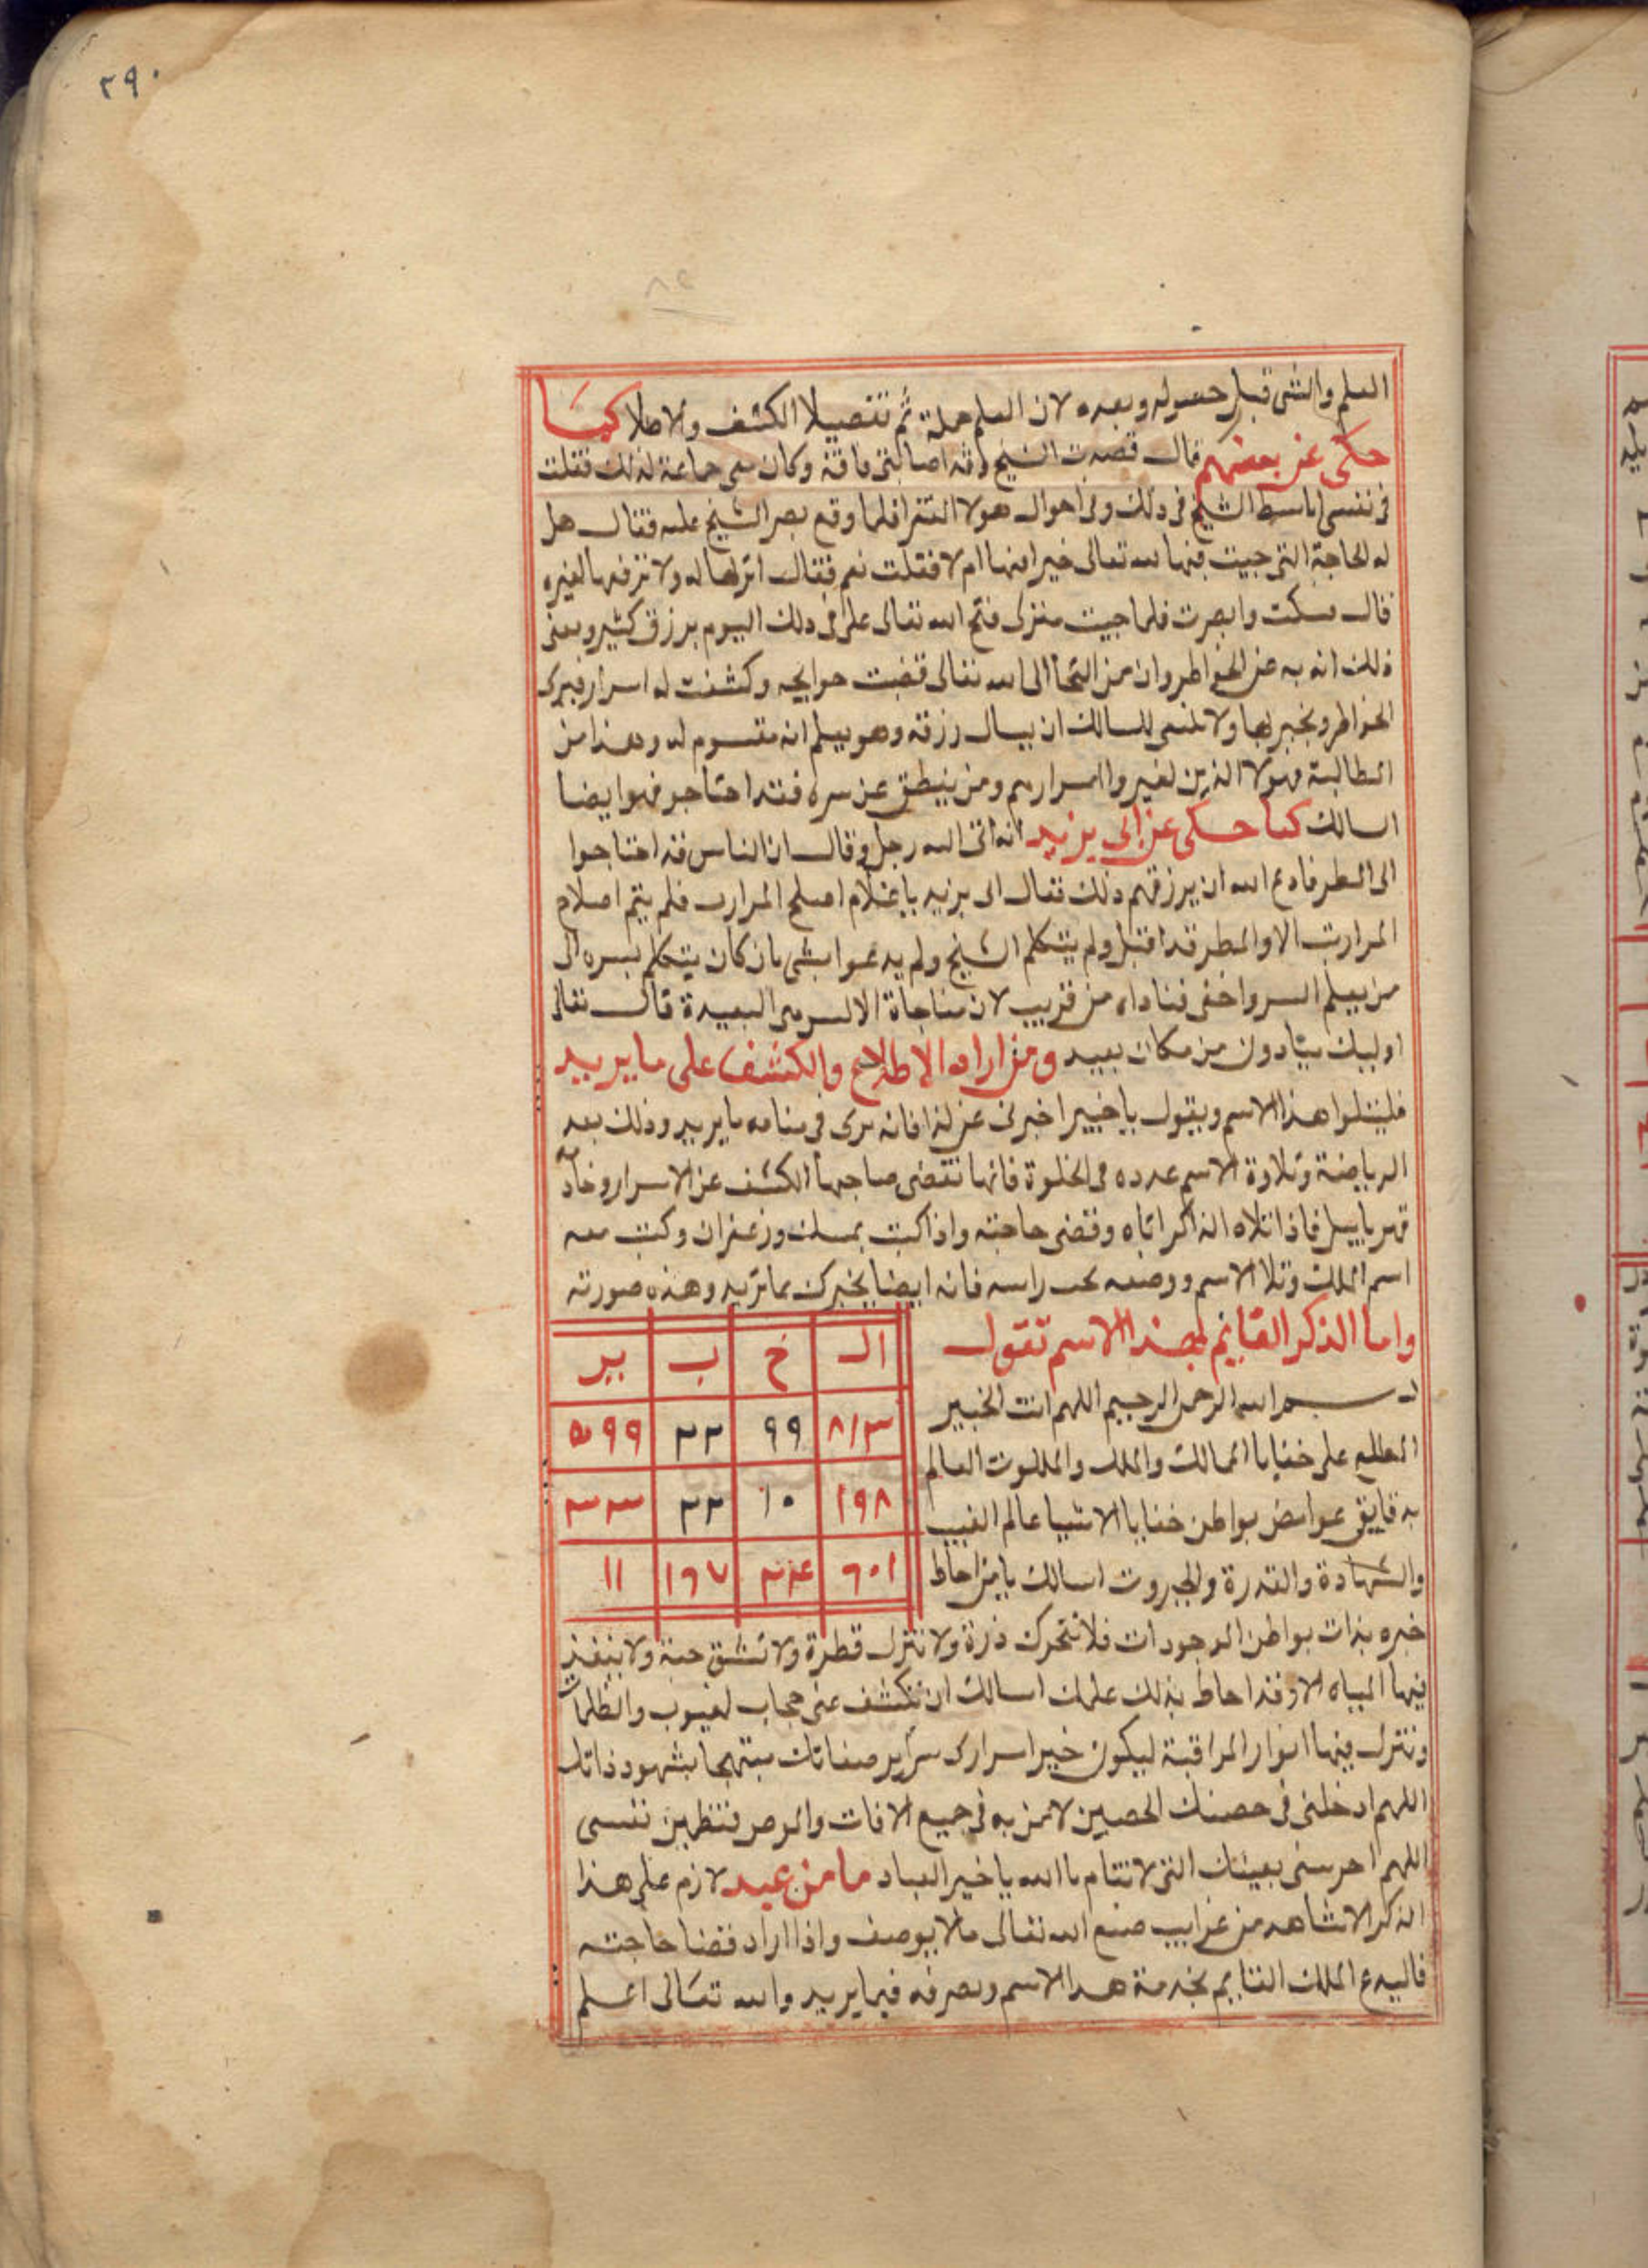 ٢٩٠
العلم والشي قبل حصوله وبعده لان العلم جملة ثم تفصيلا الكشف والاطلا كما
حكى عن بعضهم قال قصدت الشيخ وقد اصابتنى فاقة وكان معى جماعة لذلك فقلت
فى نفسى اباسط الشيخ فى ذلك وفى احوال هولا الفقرا فلما وقع بصر الشيخ عليه فقال هل
له لحاجة التى جيت فيها لله تعالى خيرا فيها ام لا فقلت نعم فقال انزلها له ولا ترفعها لغيره
قال فسكت وابصرت فلما جيت منزلى فتح الله تعالى على فى ذلك اليوم برزق كثير ومعنى
ذلك انه به عن الخواطر وان من التجا الى الله تعالى قضيت حوايجه وكشفت له اسرار فيرى
الخواطر ويخبر بها ولا ينبغى للسالك ان يسال رزقه وهو يعلم انه مقسوم له وهذا من
المطالبة فهولا الذين لغيروا اسرارهم ومن ينطق عن سره فقد احتاجو فهو ايضا
اسالك كما حكى عن ابى يزيد انه اتى اليه رجل وقال ان الناس قد احتاجوا
الى المطر فادع الله ان يرزقهم ذلك فقال ابى يزيد ياغلام اصلح المزاريب فلم يتم اصلاح
المزاريب الا والمطر قد اقبل ولم يتكلم الشيخ ولم يدعوا بشى بان كان يتكلم بسره الى
من يعلم السر واخفى فناداه من قريب لان مناجاة الالسن من البعيدة قال تعالى
اوليك ينادون من مكان بعيد ومن اراد الاطلاع والكشف على ما يريد
فليتلوا هذا الاسم ويقول ياخبير اخبرنى عن كذا فانه يرى فى منامه ما يريد وذلك بعد
الرياضة وتلاوة الاسم عدده فى الخلوة فانها تقتضى صاحبها الكشف عن الاسرار وخادمه
قهرياييل فاذا تلاه الذاكر اتاه وقضى حاجته واذا كتب بمسك وزعفران وكتب معه
اسم الملك وتلا الاسم ووضعه تحت راسه فانه ايضا يخبرك بما تريد وهذه صورته
واما الذكر القايم لهذا الاسم تقول
بسم الله الرحمن الرحيم اللهم انت الخبير
المطلع على خفايا الممالك والملك والملكوت العالم
بدقايق غوامض بواطن خفايا الاشيا عالم الغيب
والشهادة والقدرة والجبروت اسالك يا من احاط
ال خ ب ير
٨١٣ ٩٩ ٢٢ ٥٩٩
١٩٨ ١٠ ٢٢ ٣٣
٦٠١ ٢٤ ١٦٧ ١١
خبره بذات بواطن الموجودات فلا تتحرك ذرة ولا تنزل قطرة ولا تنشق حبة ولا ينفذ
فيها المياه الا وقد احاط بذلك علمك اسالك ان تكشف عنى حجاب لغيوب والظلمات
وتنزل فيها انوار المراقبة ليكون خبير اسرارك سراير صفاتك مبتهجا بشهود ذاتك
اللهم ادخلنى فى حصنك الحصين لامن به فى جميع الافات فتطهين نفسى
اللهم احرسنى بعينك التى لا تنام يا الله يا خير العباد ما من عبد لازم على هذا
الذكر الا شاهد من غرايب صنع الله تعالى مالا يوصف واذا اراد قضا حاجته
فاليدع الملك القايم بخدمة هذا الاسم ويصرفه فيما يريد والله تعالى اعلم